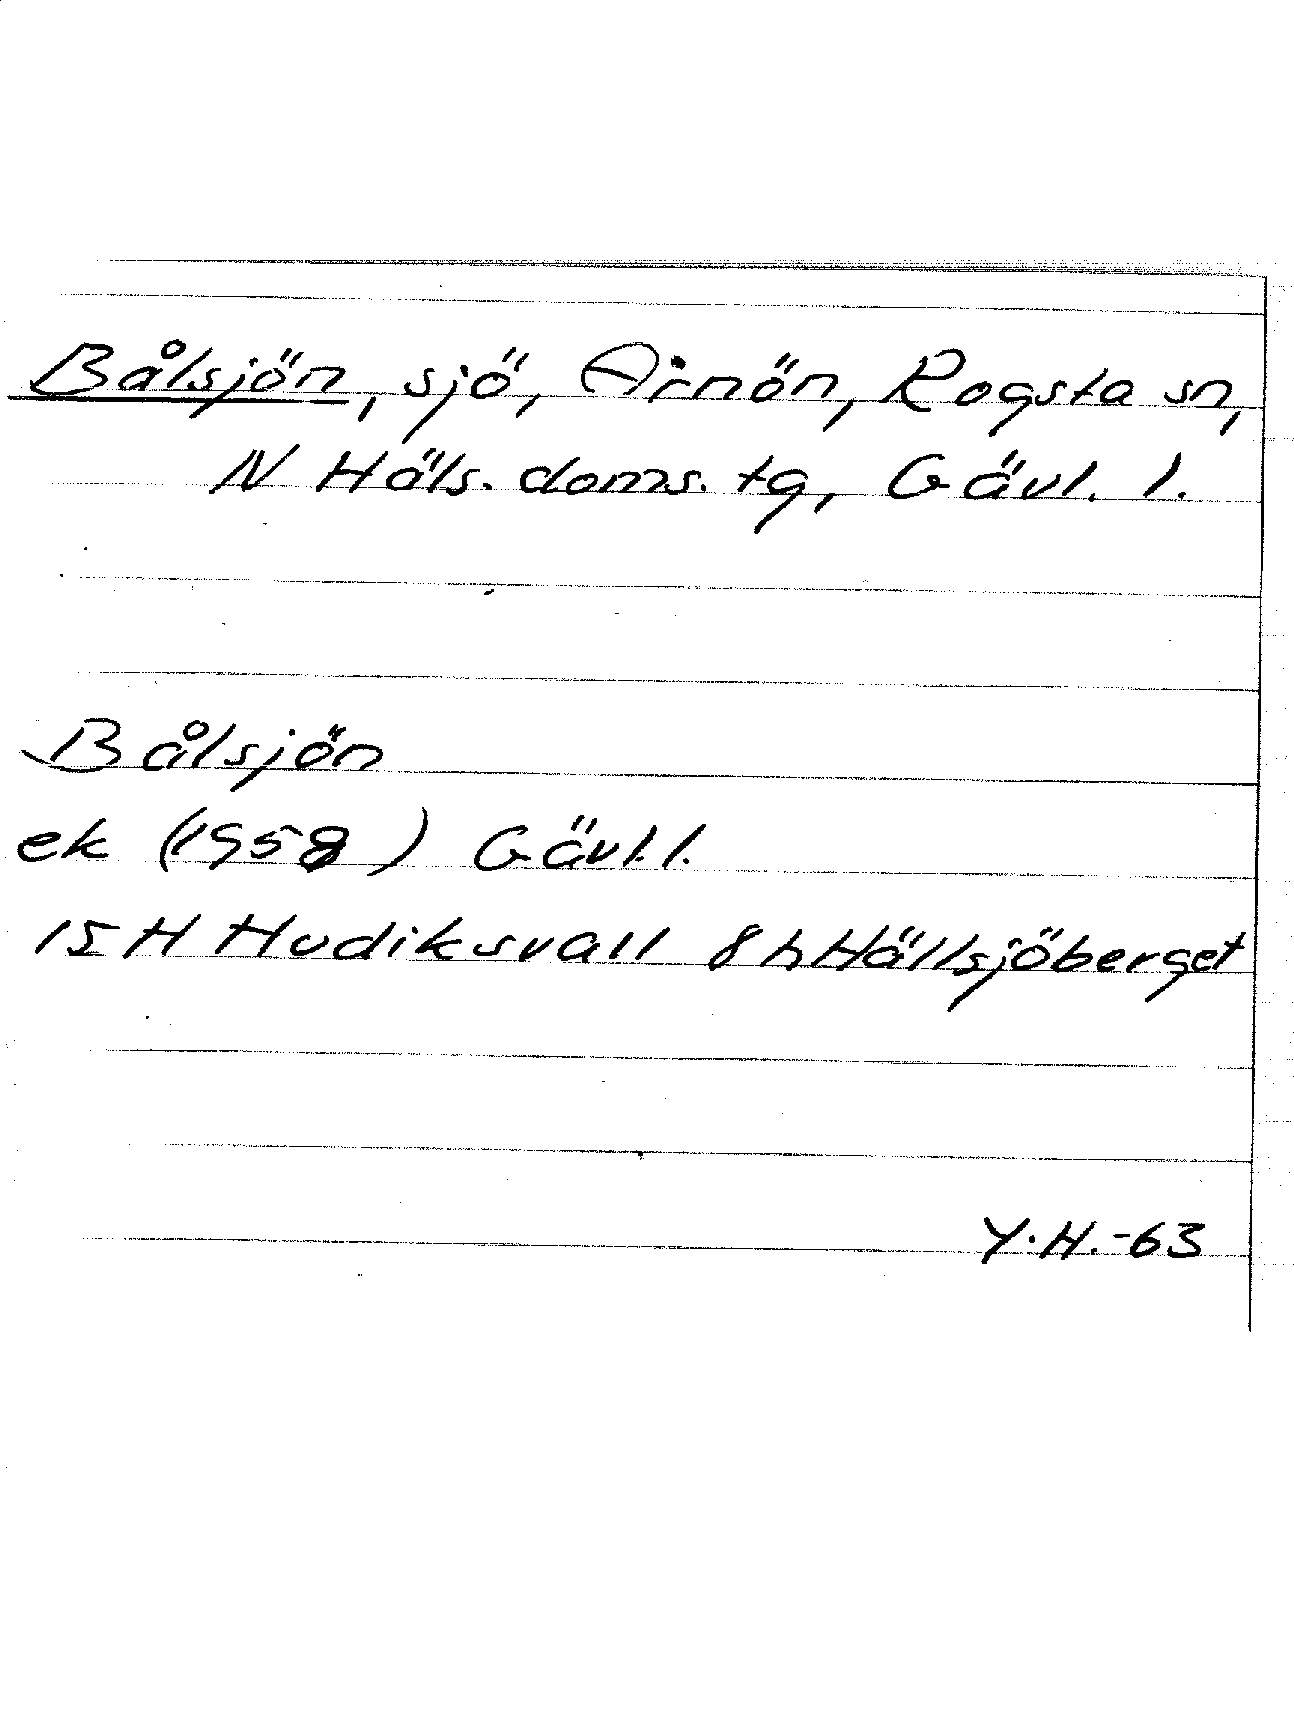 Bålsjön, sjö, Arnön, Rogsta sn,
N Häls. doms. tg, Gävl. l.
Bålsjön
ek (1958) Gävl. l.
15H Hudiksvall 8h Hällsjöberget
Y.H.-63